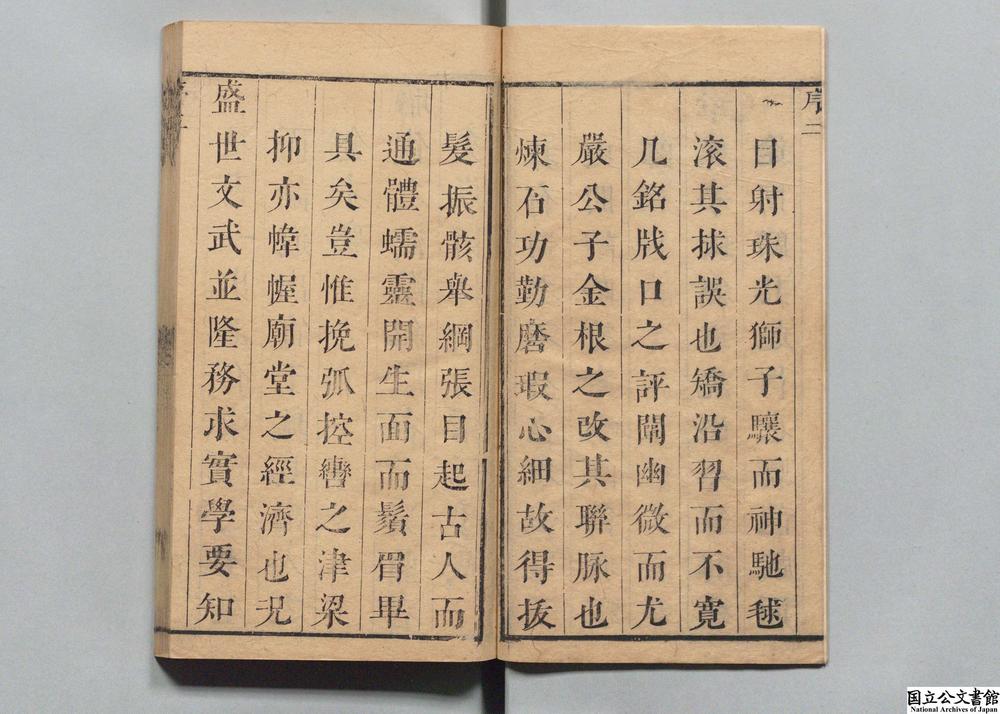 序二
目射珠光獅子驤而神馳毬
滾其捄誤也矯沿習而不寛
几銘戕口之評闡幽微而尤
嚴公子金根之改其聯脉也
煉石功勤磨瑕心細故得扳
髮振骸舉綱張目起古人而
通體蠕靈開生面而鬚眉畢
具矣豈惟挽弧控轡之津梁
抑亦幃幄廟堂之經濟也況
盛世文武並隆務求實學要知
国立公文書館
National Archives of Japan